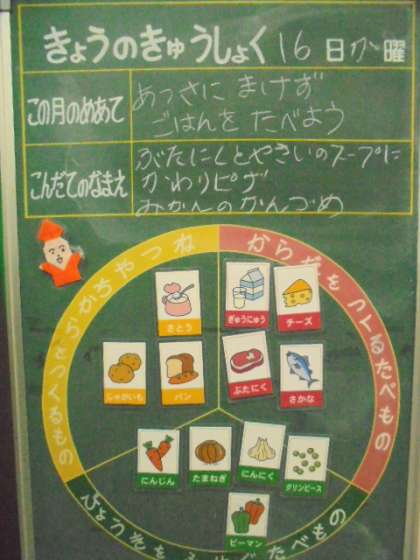 きょうのきゅうしょく 16 日 か 曜
この月のめあて
あつさに まけず
ごはんを たべよう
こんだてのなまえ
ぶたにくとやさいのスープに
かわりピザ
みかんのかんづめ
ちからやねつをつくるもの
からだをつくるたべもの
さとう
ぎゅうにゅう
チーズ
じゃがいも
パン
ぶたにく
さかな
にんじん
たまねぎ
にんにく
グリンピース
ピーマン
びょうきを
たべもの